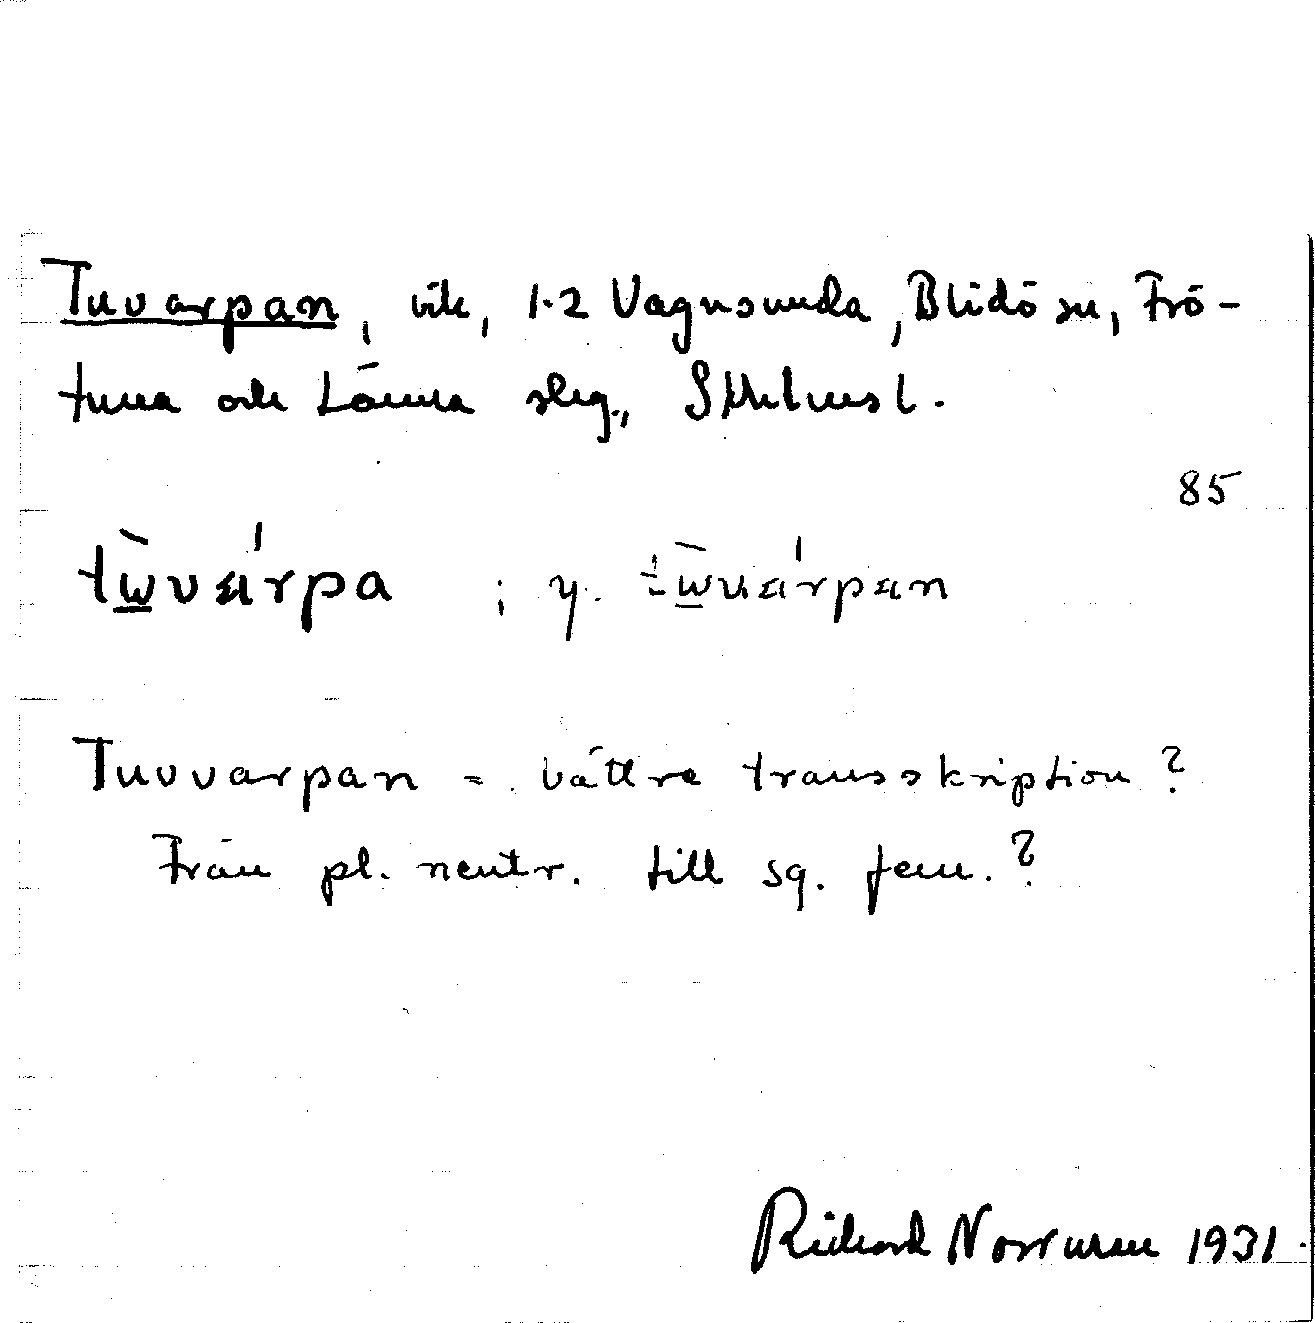 Tuvarpan, vik, 1-2 Vagnsunda, Blidö sn, Frö-
tuna och Länna skg., Sthlms l.
85
tὼ̲vάrpa ; y. tὼ̲vάrpan
Tuvvarpan = bättre transskription?
Från pl. neutr. till sg. fem.?
Richard Norrman 1931.